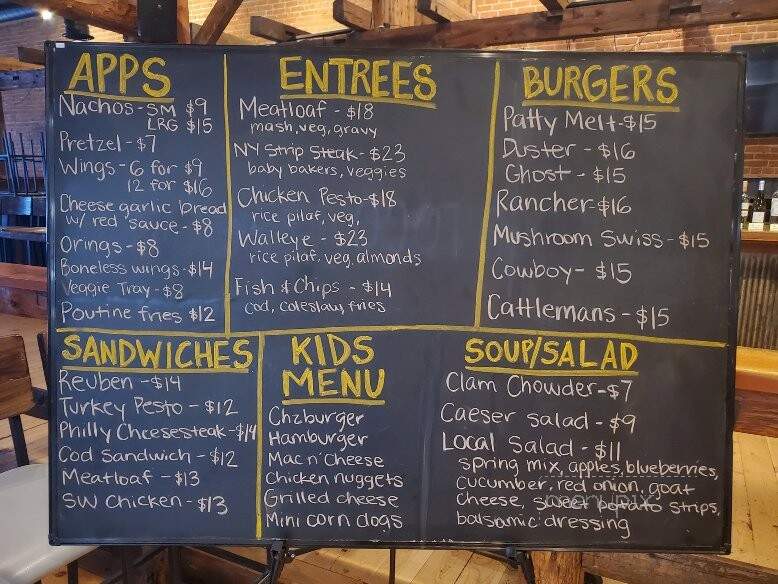 APPS
Nachos - SM $9
LRG $15
Pretzel - $7
Wings - 6 for $9
12 for $16
Cheese garlic bread
w/ red sauce - $8
Orings - $8
Boneless wings - $14
Veggie Tray - $8
Poutine fries $12
ENTREES
Meatloaf - $18
mash, veg, gravy
NY Strip Steak - $23
baby bakers, veggies
Chicken Pesto - $18
rice pilaf, veg,
Walleye - $23
rice pilaf, veg, almonds
Fish & Chips - $14
cod, coleslaw, fries
BURGERS
Patty Melt - $15
Duster - $16
Ghost - $15
Rancher - $16
Mushroom Swiss - $15
Cowboy - $15
Cattlemans - $15
SANDWICHES
Reuben - $14
Turkey Pesto - $12
Philly Cheesesteak - $14
Cod Sandwich - $12
Meatloaf - $13
SW Chicken - $13
KIDS
MENU
Chzburger
Hamburger
Mac n' Cheese
Chicken nuggets
Grilled cheese
Mini corn dogs
SOUP/SALAD
Clam Chowder - $7
Caeser Salad - $9
Local Salad - $11
spring mix, apples, blueberries,
cucumber, red onion, goat
cheese, sweet potato strips,
balsamic dressing